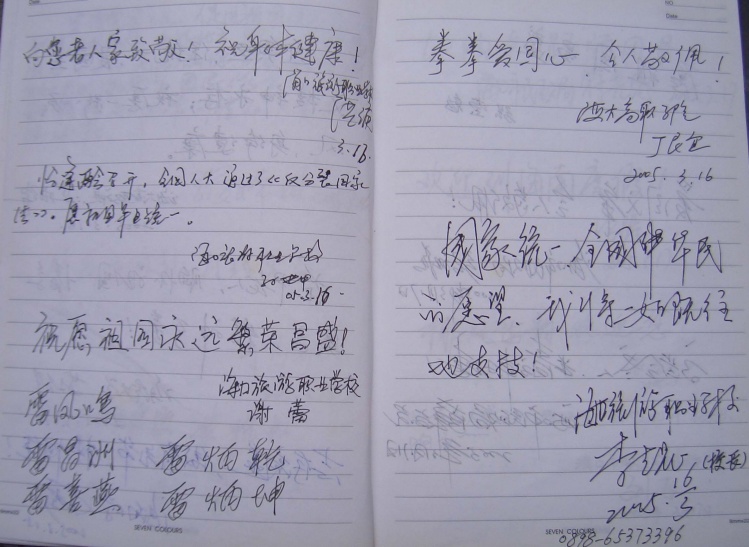 向您老人家致敬！祝身体健康！
海口旅游职业学校
3.16
恰逢两会召开，全国人大通过了《反分裂国家
法》。愿祖国早日统一。
海口旅游职业学校
05.3.16.
祝愿祖国永远繁荣昌盛！
海口旅游职业学校
谢蕾
雷凤鸣
雷昌洲 雷炳乾
雷喜燕 雷炳坤
SEVEN COLOURS
NO.
Date
拳拳爱国心，令人敬佩！
丁良宜
2005.3.16
国家统一，全国中华民
的愿望，我将一如既往
地支持！
海口旅游职业学校
(校长)
2005.3.16
SEVEN COLOURS
0898-65373396